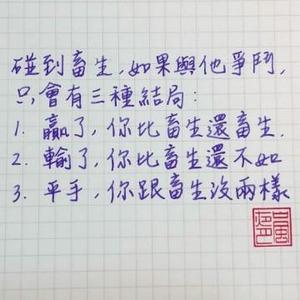 碰到畜生，如果與他爭鬥，
只會有三種結局：
1. 贏了，你比畜生還畜生．
2. 輸了，你比畜生還不如
3. 平手，你跟畜生沒兩樣